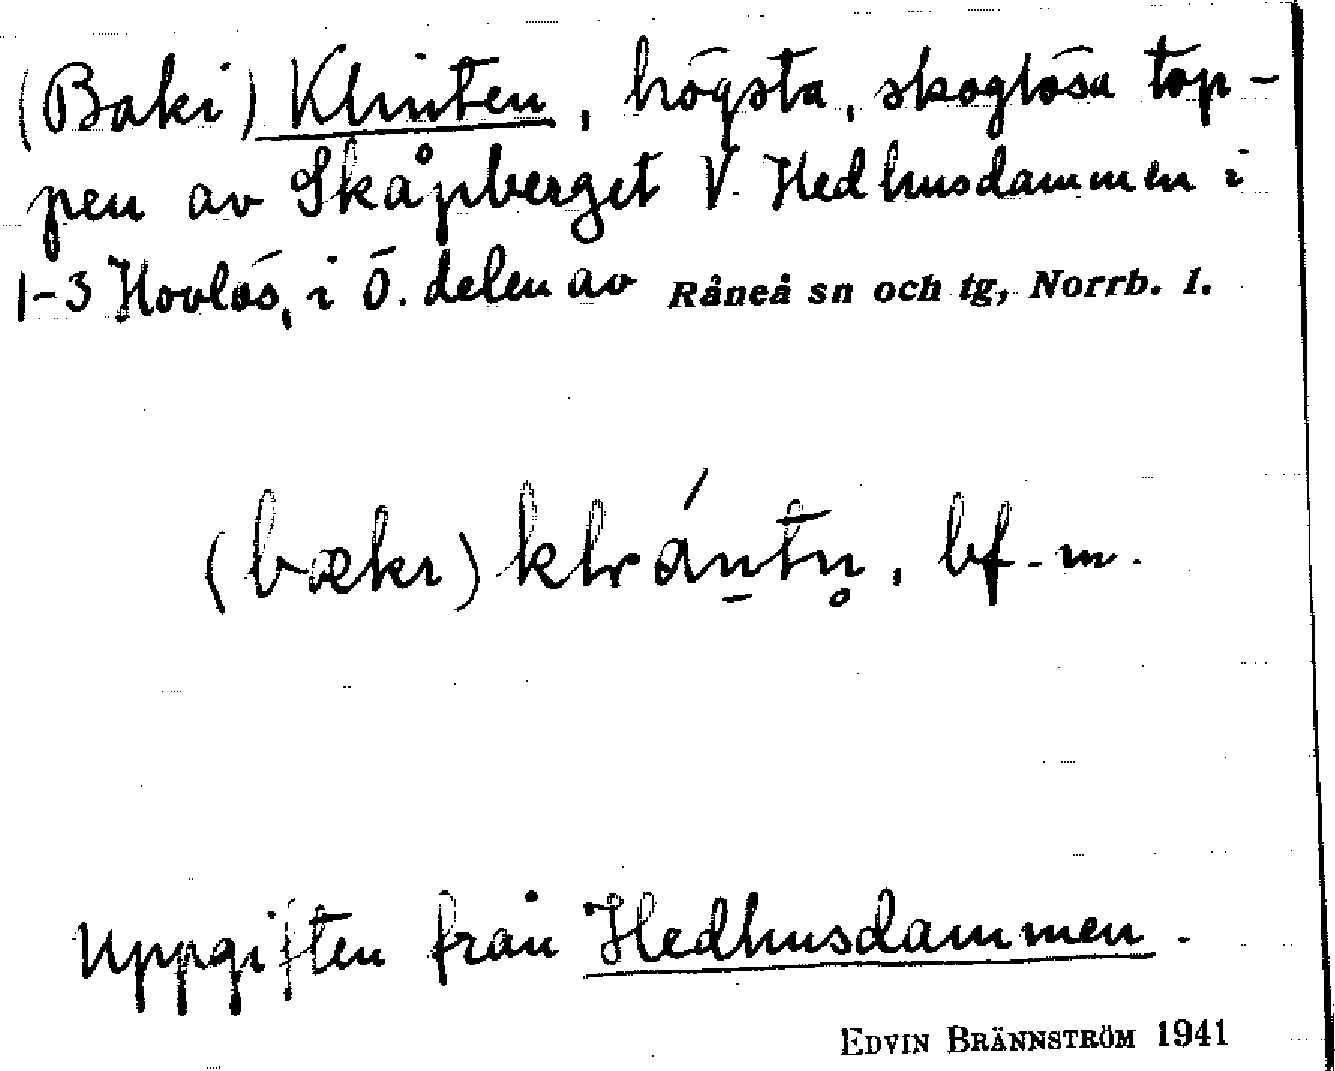 (Baki) Klinten, högsta, skoglösa top-
pen av Skåpberget V. Hedhusdammen i
1-3 Hovlös, i Ö. delen av Råneå sn och tg, Norrb. l.
bf. m.
Uppgiften från Hedhusdammen.
EDVIN BRÄNNSTRÖM 1941